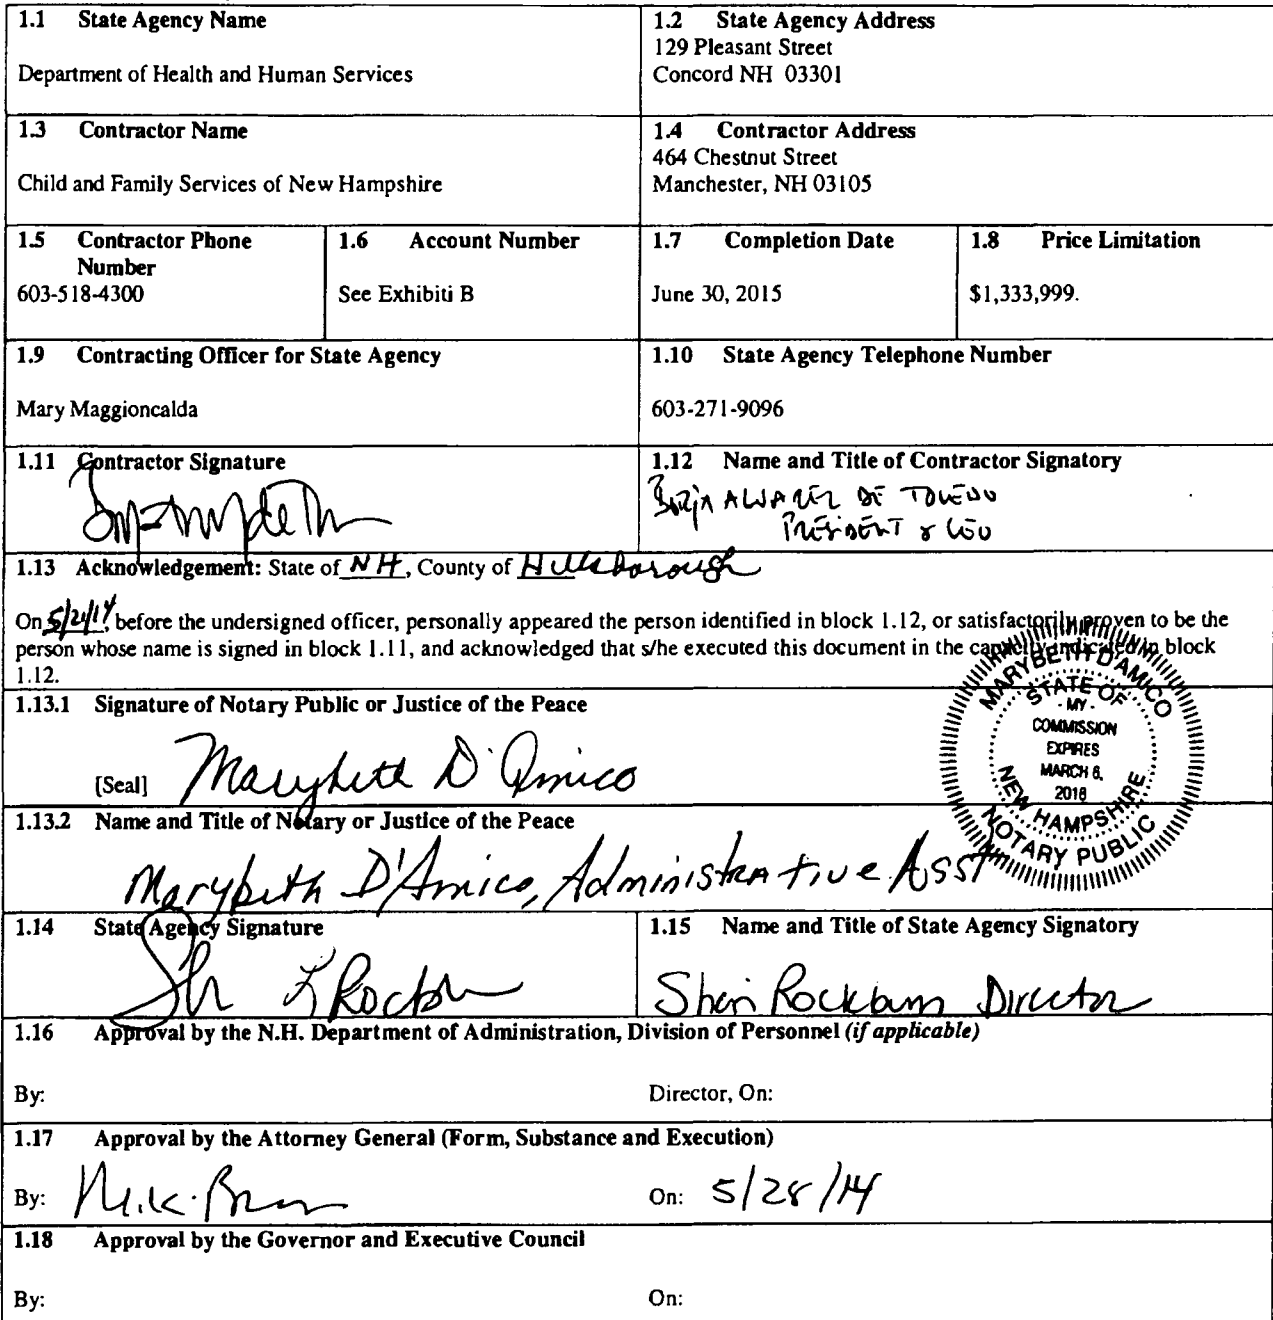 1.1 State Agency Name
Department of Health and Human Services
1.2 State Agency Address
129 Pleasant Street
Concord NH 03301
1.3 Contractor Name
Child and Family Services of New Hampshire
1.4 Contractor Address
464 Chestnut Street
Manchester, NH 03105
1.5 Contractor Phone
Number
603-518-4300
1.6 Account Number
See Exhibiti B
1.7 Completion Date
June 30, 2015
1.8 Price Limitation
$1,333,999.
1.9 Contracting Officer for State Agency
Mary Maggioncalda
1.10 State Agency Telephone Number
603-271-9096
1.11 Contractor Signature
1.12 Name and Title of Contractor Signatory
Borja ALVAREZ DE TOLEDO
PRESIDENT & CEO
1.13 Acknowledgement: State of NH, County of Hillsborough
On 5/21/14, before the undersigned officer, personally appeared the person identified in block 1.12, or satisfactorily proven to be the
person whose name is signed in block 1.11, and acknowledged that s/he executed this document in the capacity indicated in block
1.12.
1.13.1 Signature of Notary Public or Justice of the Peace
[Seal] Marybeth D'Amico
MARYBETH D'AMICO
STATE OF
- MY -
COMMISSION
EXPIRES
MARCH 6,
2018
NEW HAMPSHIRE
NOTARY PUBLIC
1.13.2 Name and Title of Notary or Justice of the Peace
Marybeth D'Amico, Administrative Asst
1.14 State Agency Signature
1.15 Name and Title of State Agency Signatory
Sheri Rockburn Director
1.16 Approval by the N.H. Department of Administration, Division of Personnel (if applicable)
By:
Director, On:
1.17 Approval by the Attorney General (Form, Substance and Execution)
By:
On: 5/28/14
1.18 Approval by the Governor and Executive Council
By:
On: